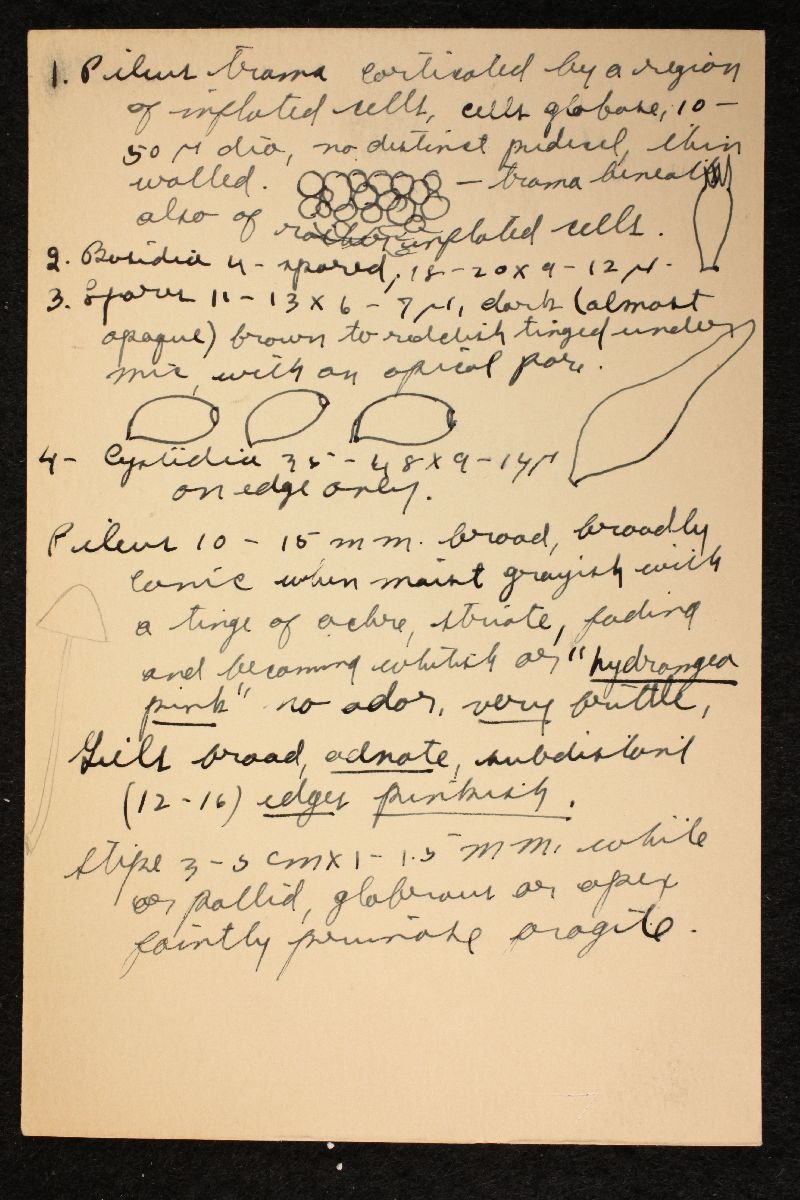 1. Pileus trama corticated by a region
of inflated cells, cells globose, 10 -
50 μ dia, no distinct pedicel, thin
walled. — trama beneath
also of rather inflated cells.
2. Basidia 4 - spored, 18 - 20 x 9 - 12 μ.
3. Spores 11 - 13 x 6 - 7 μ, dark (almost
opaque) brown to reddish tinged under
mic, with an apical pore.
4 - Cystidia 35 - 48 x 9 - 14 μ
on edge only.
Pileus 10 - 15 mm. broad, broadly
conic when moist grayish with
a tinge of ochre, striate, fading
and becoming whitish or "hydrangea
pink" no odor, very brittle,
Gills broad, adnate, subdistant
(12 - 16) edges pinkish.
Stipe 3 - 5 cm x 1 - 1.5 mm, white
or pallid, glabrous or apex
faintly pruinose fragile.